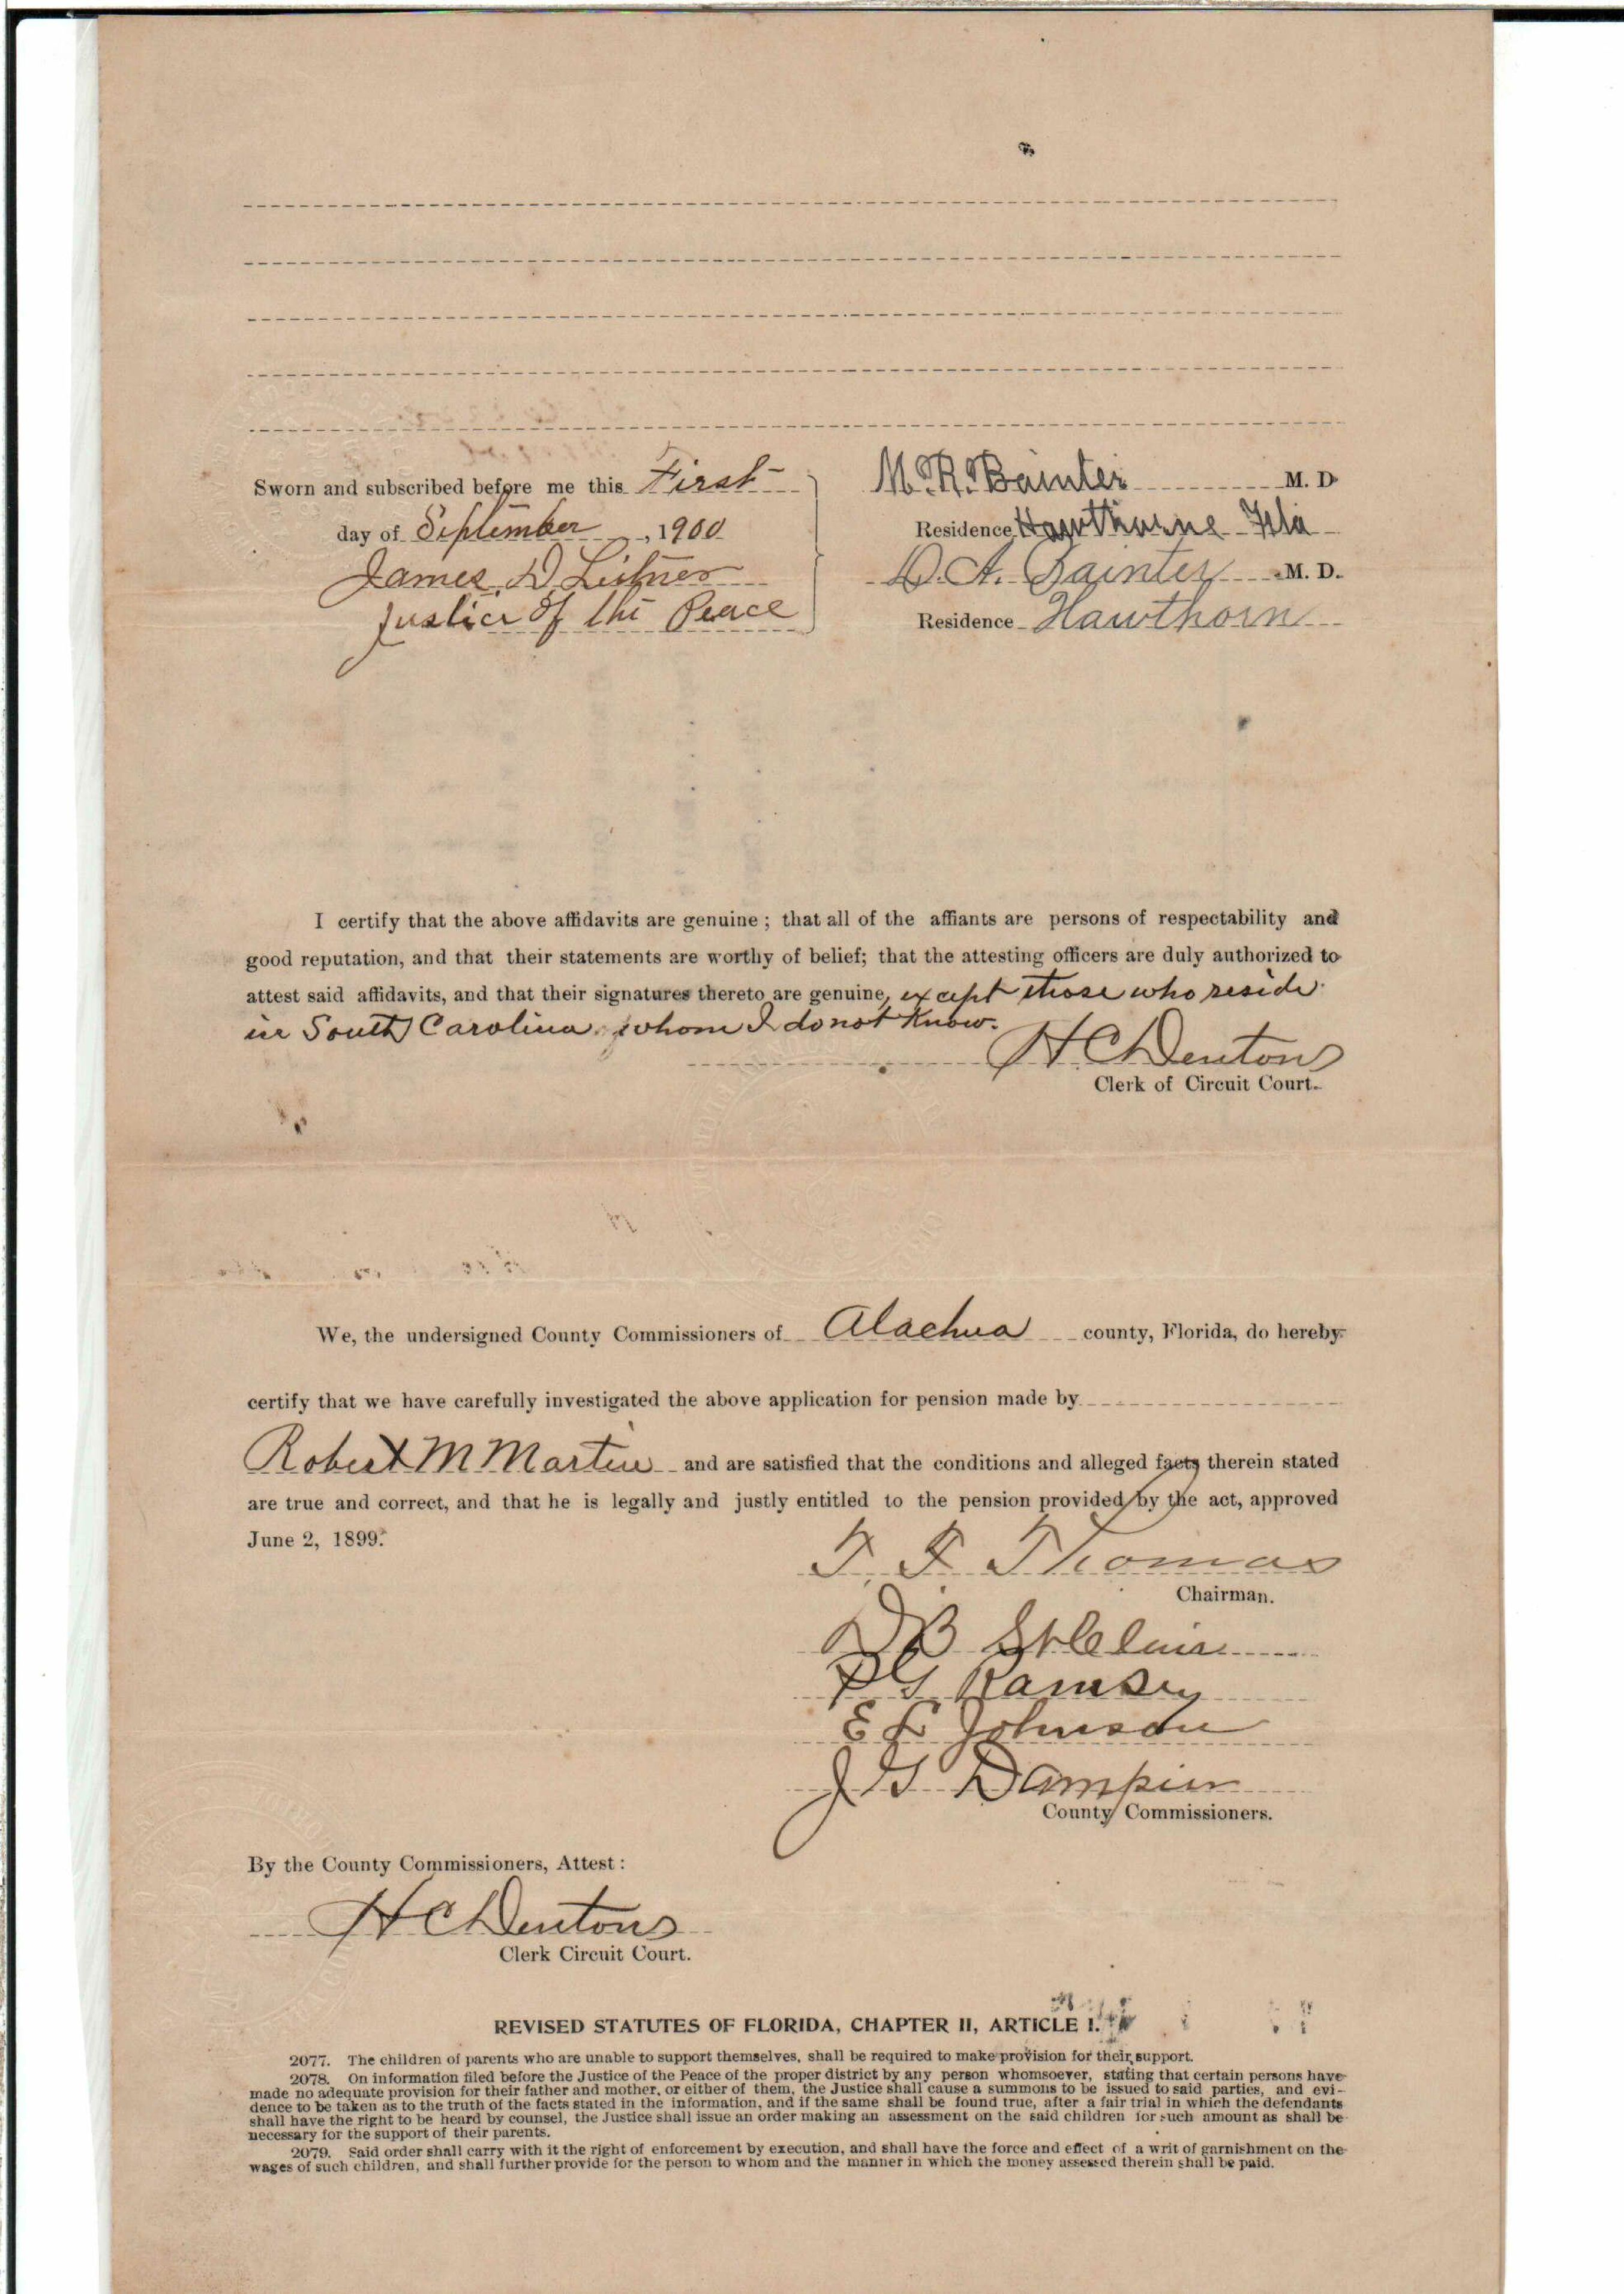 Sworn and subscribed before me this First
day of September, 1900
James D. Leitner
Justice of the Peace
M. R. Bainter M. D.
Residence Hawthorne Fla
D. A. Bainter M. D.
Residence Hawthorn
I certify that the above affidavits are genuine; that all of the affiants are persons of respectability and
good reputation, and that their statements are worthy of belief; that the attesting officers are duly authorized to
attest said affidavits, and that their signatures thereto are genuine, except those who reside
in South Carolina, whom I do not know.
H C Denton
Clerk of Circuit Court.
We, the undersigned County Commissioners of Alachua county, Florida, do hereby
certify that we have carefully investigated the above application for pension made by
Robert M Martin and are satisfied that the conditions and alleged facts therein stated
are true and correct, and that he is legally and justly entitled to the pension provided by the act, approved
June 2, 1899.
F. F. Thomas
Chairman.
D B St Clair
P G Ramsey
E L Johnson
J G Dampier
County Commissioners.
By the County Commissioners, Attest:
H C Denton
Clerk Circuit Court.
REVISED STATUTES OF FLORIDA, CHAPTER II, ARTICLE I.
2077. The children of parents who are unable to support themselves, shall be required to make provision for their support.
2078. On information filed before the Justice of the Peace of the proper district by any person whomsoever, stating that certain persons have
made no adequate provision for their father and mother, or either of them, the Justice shall cause a summons to be issued to said parties, and evi-
dence to be taken as to the truth of the facts stated in the information, and if the same shall be found true, after a fair trial in which the defendants
shall have the right to be heard by counsel, the Justice shall issue an order making an assessment on the said children for such amount as shall be
necessary for the support of their parents.
2079. Said order shall carry with it the right of enforcement by execution, and shall have the force and effect of a writ of garnishment on the
wages of such children, and shall further provide for the person to whom and the manner in which the money assessed therein shall be paid.